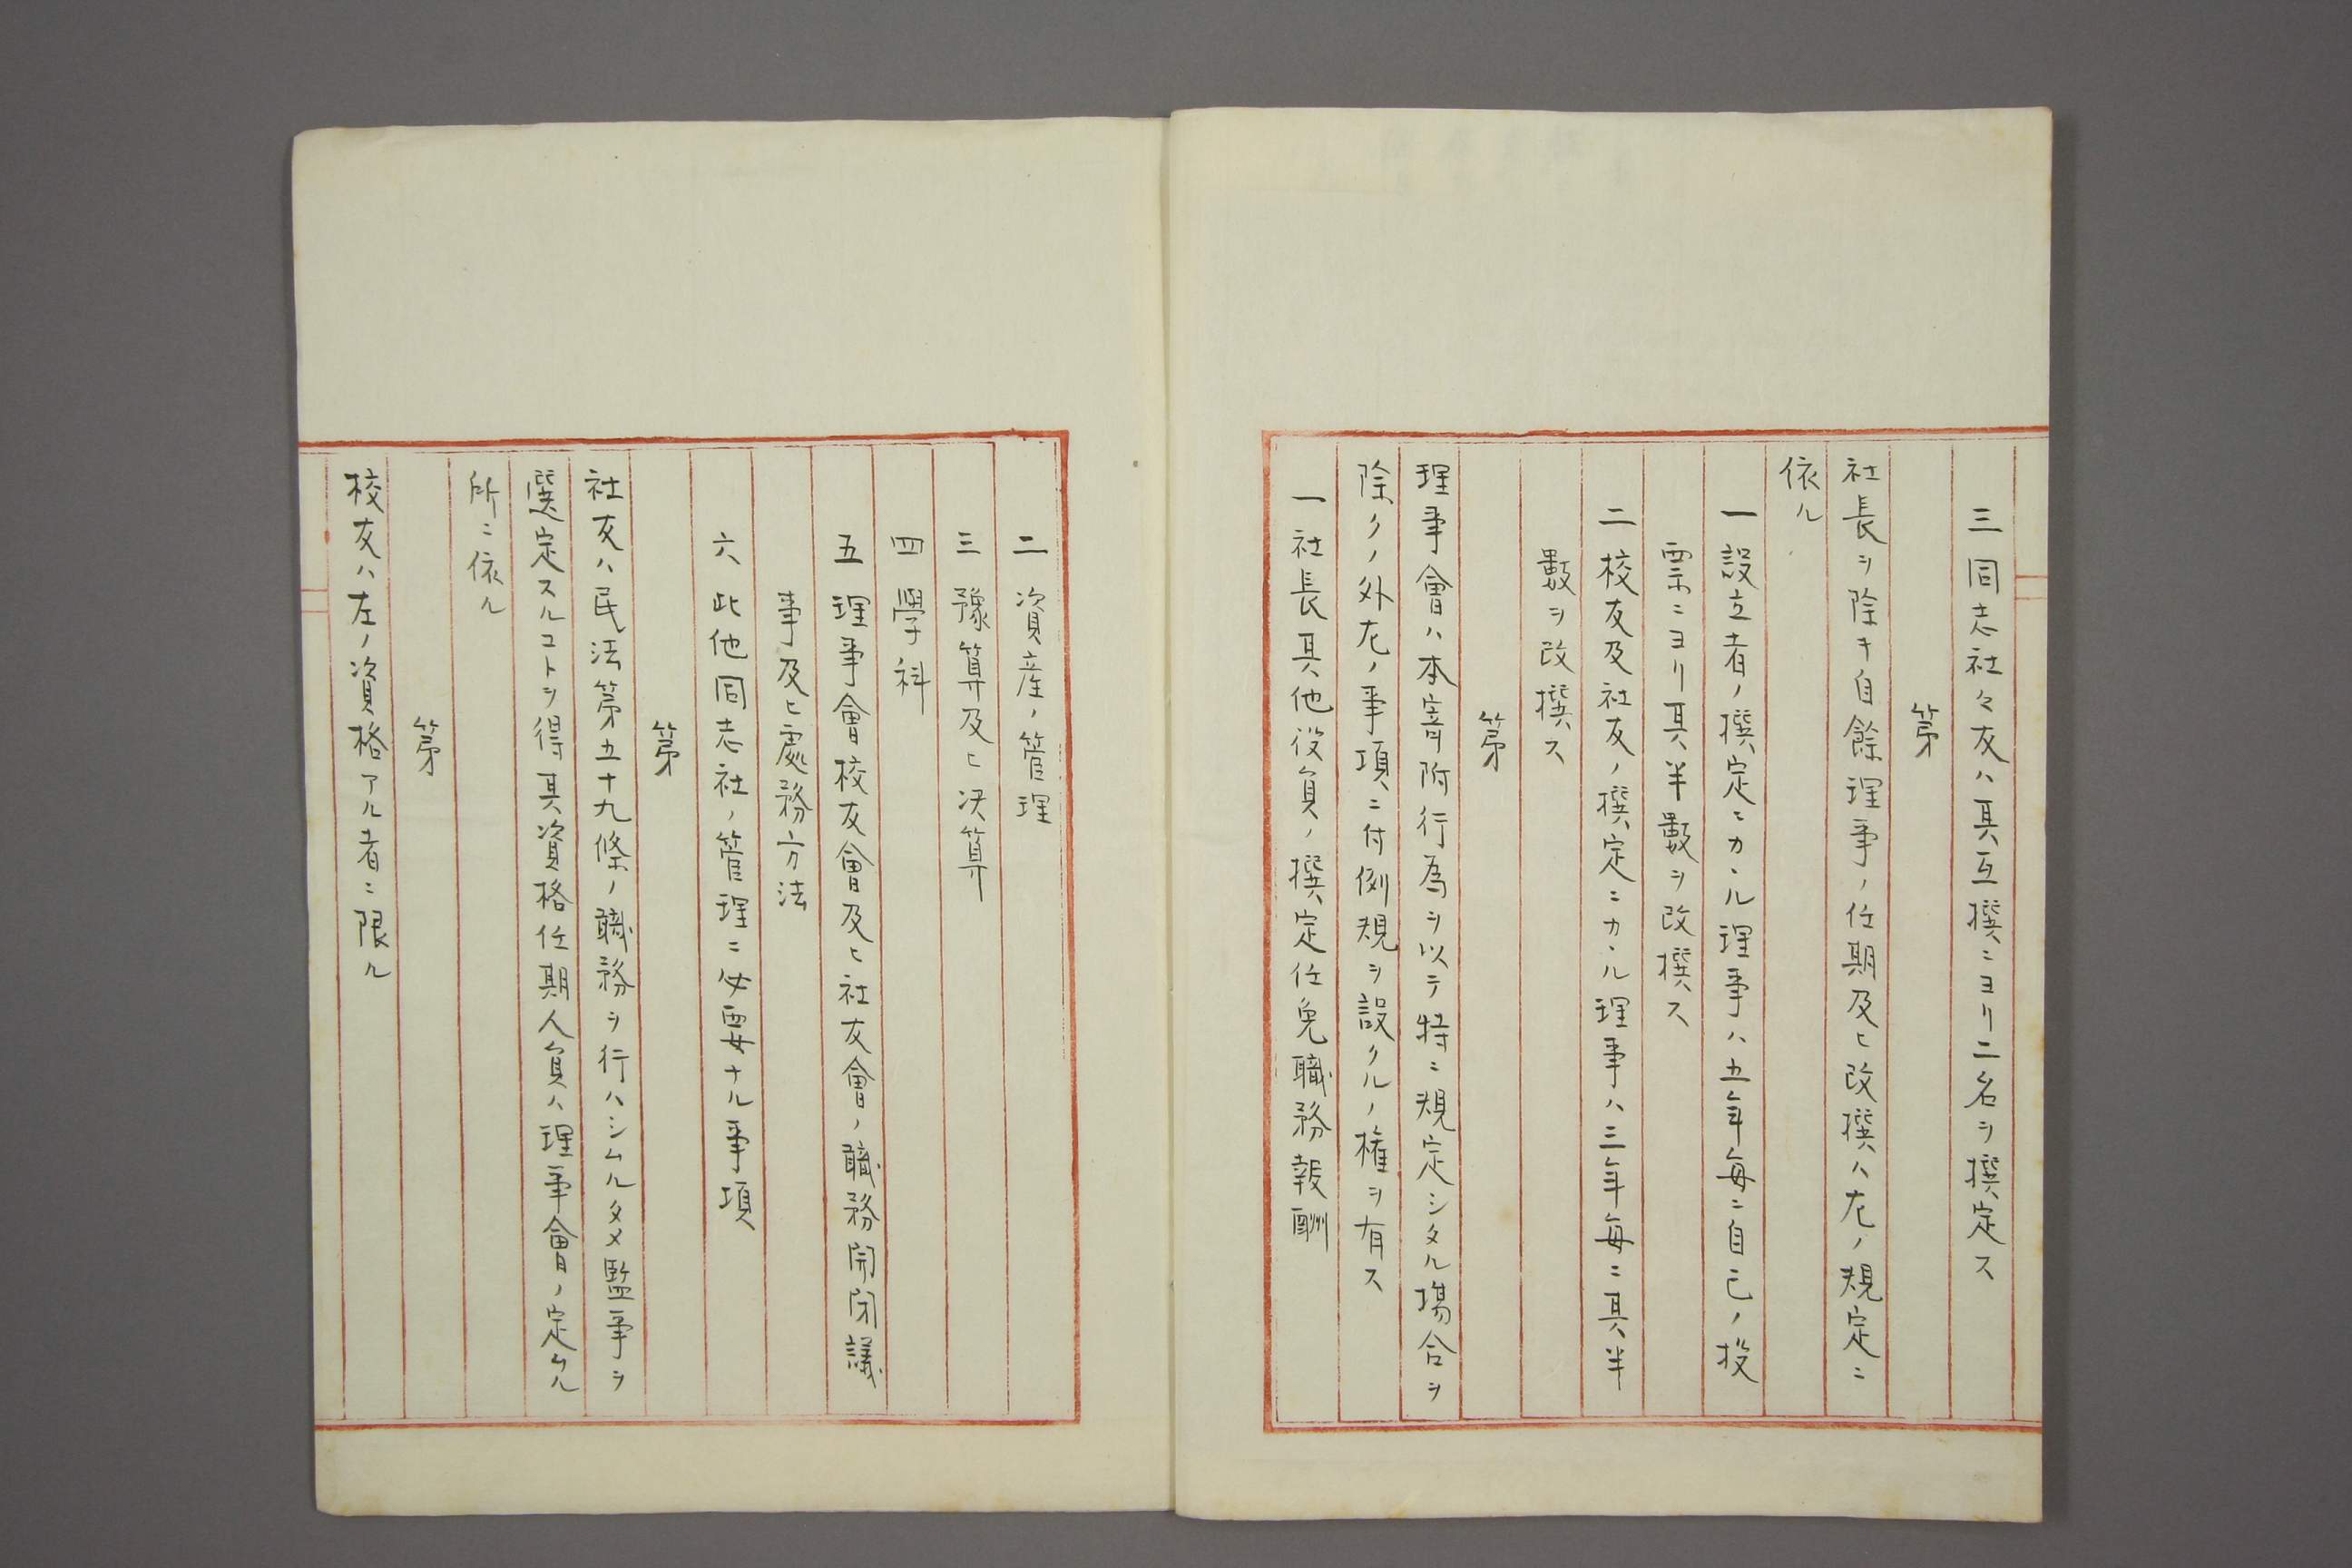 三同志社々友ハ其互撰ニヨリ二名ヲ撰定ス
第
社長ヲ除キ自餘理事ノ任期及ヒ改撰ハ左ノ規定ニ
依ル
一設立者ノ撰定ニカヽル理事ハ五年毎ニ自己ノ投
票ニヨリ其半數ヲ改撰ス
二校友及社友ノ撰定ニカヽル理事ハ三年毎ニ其半
數ヲ改撰ス
第
理事會ハ本寄附行為ヲ以テ特ニ規定シタル塲合ヲ
除クノ外左ノ事項ニ付例規ヲ設クルノ権ヲ有ス
一社長其他役員ノ撰定任免職務報酬
二資産ノ管理
三豫算及ヒ决算
四學科
五理事會校友會及ヒ社友會ノ職務開閉議
事及ヒ處務方法
六此他同志社ノ管理ニ必要ナル事項
第
社友ハ民法第五十九條ノ職務ヲ行ハシムルタメ監事ヲ
選定スルコトヲ得其資格任期人員ハ理事會ノ定ムル
所ニ依ル
第
校友ハ左ノ資格アル者ニ限ル